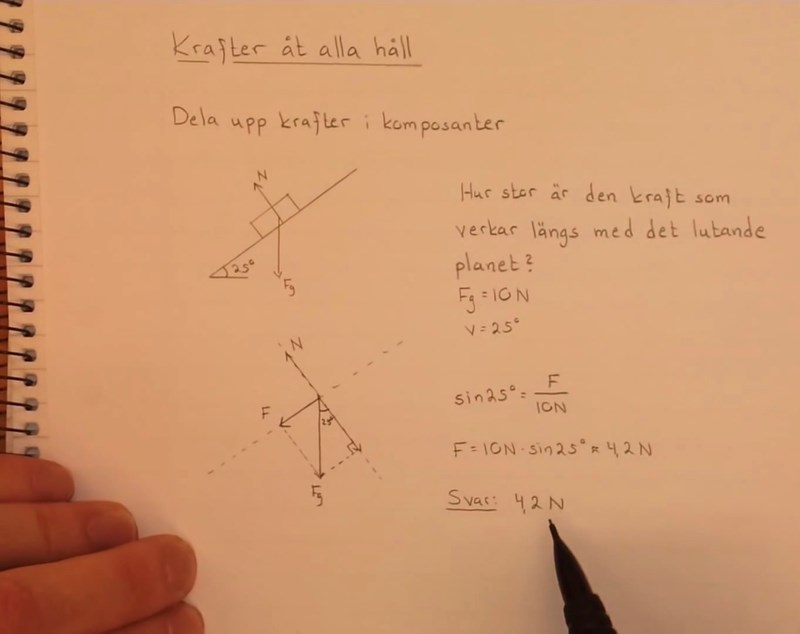 Krafter åt alla håll
Dela upp krafter i komposanter
N
25°
Fg
Hur stor är den kraft som
verkar längs med det lutande
planet?
Fg = 10N
v = 25°
N
F
25°
Fg
sin25° = F/10N
F = 10N · sin25° ≈ 4,2 N
Svar: 4,2 N